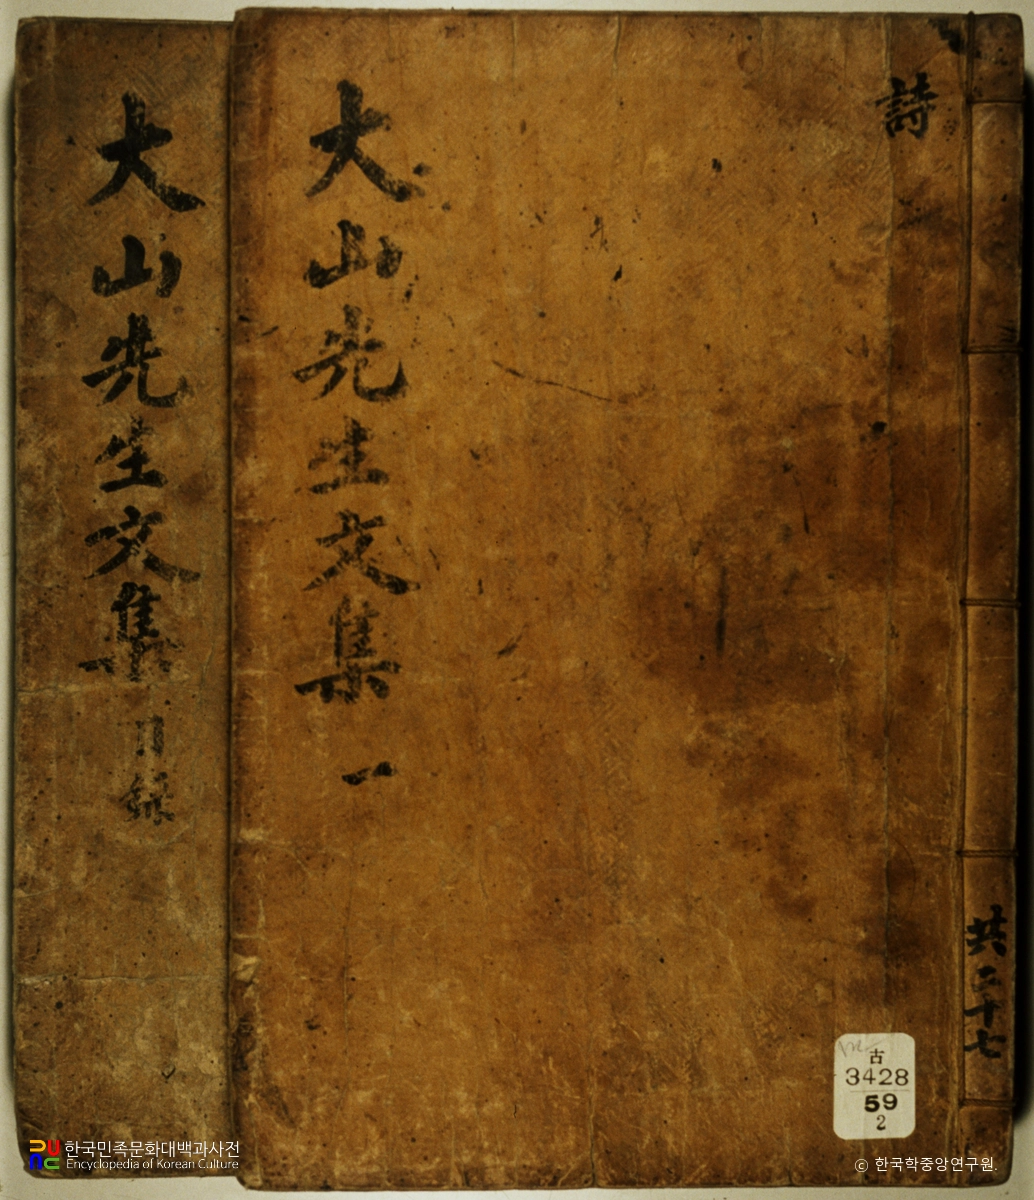 詩
大山先生文集 一
共二十七
大山先生文集 目錄
古
3428
59
2
한국민족문화대백과사전
Encyclopedia of Korean Culture
ⓒ 한국학중앙연구원.